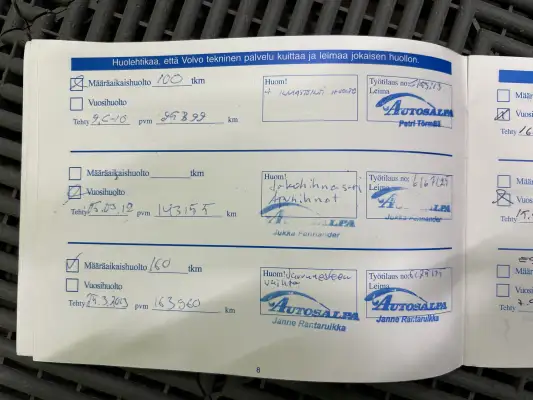 Huolehtikaa, että Volvo tekninen palvelu kuittaa ja leimaa jokaisen huollon.
Määräaikaishuolto 100 tkm
Vuosihuolto
Tehty pvm 95899 km
Huom!
+ ILMASTOINTI HUOLTO
Työtilaus no:
Leima
AUTOSALPA
Petri Törmälä
Määräaikaishuolto tkm
Vuosihuolto
Tehty pvm 143155 km
Huom!
Jakohihnasarja
Apuhihnat
ALPA
Jukka Fernander
Työtilaus no:
Leima
ALPA
Jukka Fernander
Määräaikaishuolto 160 tkm
Vuosihuolto
Tehty 19.3.2013 pvm 163960 km
Huom! Jarrunesteen
vaihto
AUTOSALPA
Janne Rantaruikka
Työtilaus no:
Leima
AUTOSALPA
Janne Rantaruikka
8